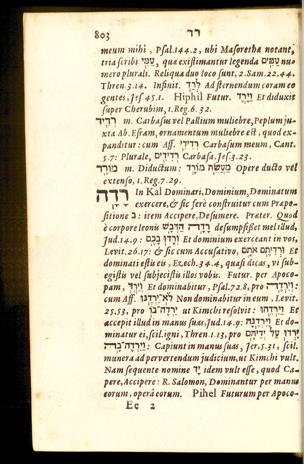 803 רד
meum mihi, Psal. 144.2, ubi Masorethæ notant,
tria scribi עַמִּי, quæ existimantur legenda עַמִּים nu-
mero plurali. Reliqua duo loco sunt, 2.Sam.22.44.
Thren.3.14. Infinit. לְרַד Ad sternendum coram eo
gentes, Jes.45.1. Hiphil Futur. וַיָּרֶד Et diduxit
super Cherubim, 1.Reg.6.32.
רְדִיד m. Carbasus vel Pallium muliebre, Peplum ju-
xta Ab. Esram, ornamentum muliebre est, quod ex-
panditur: cum Aff. רְדִידִי Carbasum meum, Cant.
5.7: Plurale, רְדִידִים Carbasa, Jes.3.23.
מוֹרָד m. Diductum: מַעֲשֵׂה מוֹרָד Opere ducto vel
extenso, 1.Reg.7.29.
רָדָה In Kal Dominari, Dominium, Dominatum
exercere, & sic ferè construitur cum Præpo-
sitione ב: item Accipere, Desumere. Prater. Quod
è corpore leonis רָדָה הַדְּבָשׁ desumpsisset mel illud,
Jud.14.9: וְרָדוּ בָכֶם Et dominium exercent in vos,
Levit.26.17: & sic cum Accusativo, וּרְדִיתֶם אֹתָם Et
dominati estis eis, Ezech.34.4, quasi dicas, vi sub-
egistis vel subjecistis illos vobis. Futur. per Apoco-
pam, וְיֵרְדְּ Et dominabitur, Psal.72.8, pro יִרְדֶּה:
cum Aff. לֹא־יִרְדֶּנּוּ Non dominabitur in eum, Levit.
25.53, pro יִרְדֶּה־בּוֹ ut Kimchi resolvit: וַיִּרְדֵּהוּ Et
accepit illud in manus suas, Jud.14.9: וַיִּרְדֶּנָּה Et do-
minatur ei, scil. igni, Thren.1.13, pro וַיִּרְדֶּה־בָּהּ
יִרְדּוּ עַל יְדֵיהֶם: Capiunt in manus suas, Jer.5.31, scil.
munera ad pervertendum judicium, ut Kimchi vult.
Nam sequente nomine יָד idem velle esse, quod Ca-
pere, Accipere: R. Salomon, Dominantur per manus
eorum, operâ eorum. Pihel Futurum per Apoco-
Ee 2